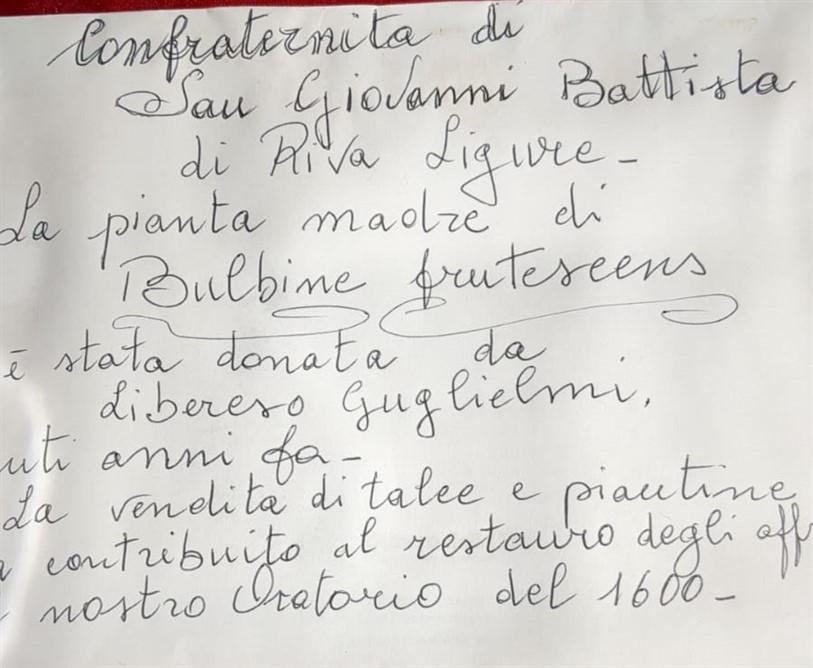 Confraternita di
San Giovanni Battista
di Riva Ligure -
La pianta madre di
Bulbine frutescens
è stata donata da
Libereso Guglielmi,
uti anni fa -
La vendita di talee e piantine
contribuito al restauro degli aff
nostro Oratorio del 1600 -